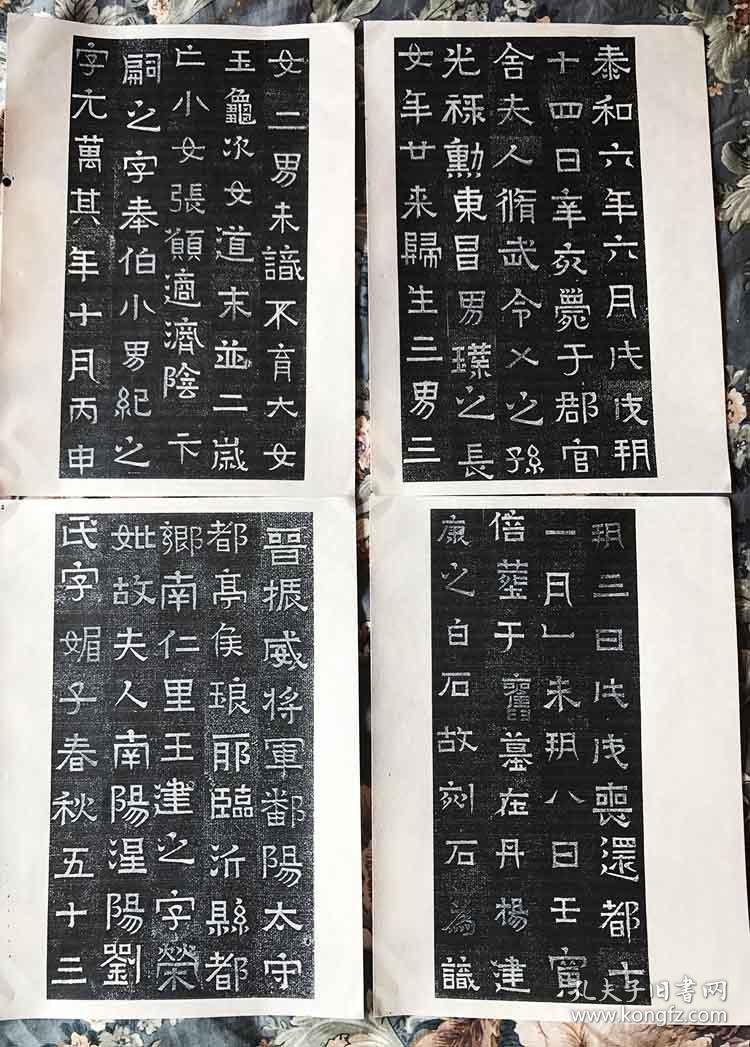 晉振威將軍鄱陽太守
都亭侯琅耶臨沂縣都
鄉南仁里王建之字榮
妣故夫人南陽涅陽劉
氏字媚子春秋五十三
泰和六年六月戊戌朔
十四日辛亥薨于郡官
舍夫人脩武令乂之孫
光禄勳東昌男璞之長
女年廿来歸生三男三
女二男未識不育大女
玉龜次女道末並二歲
亡小女張願適濟陰卞
嗣之字奉伯小男紀之
字元萬其年十月丙申
朔三日戊戌喪還都十
一月乙未朔八日壬寅
倍葬于舊墓在丹楊建
康之白石故刻石為識
孔夫子旧书网
www.kongfz.com